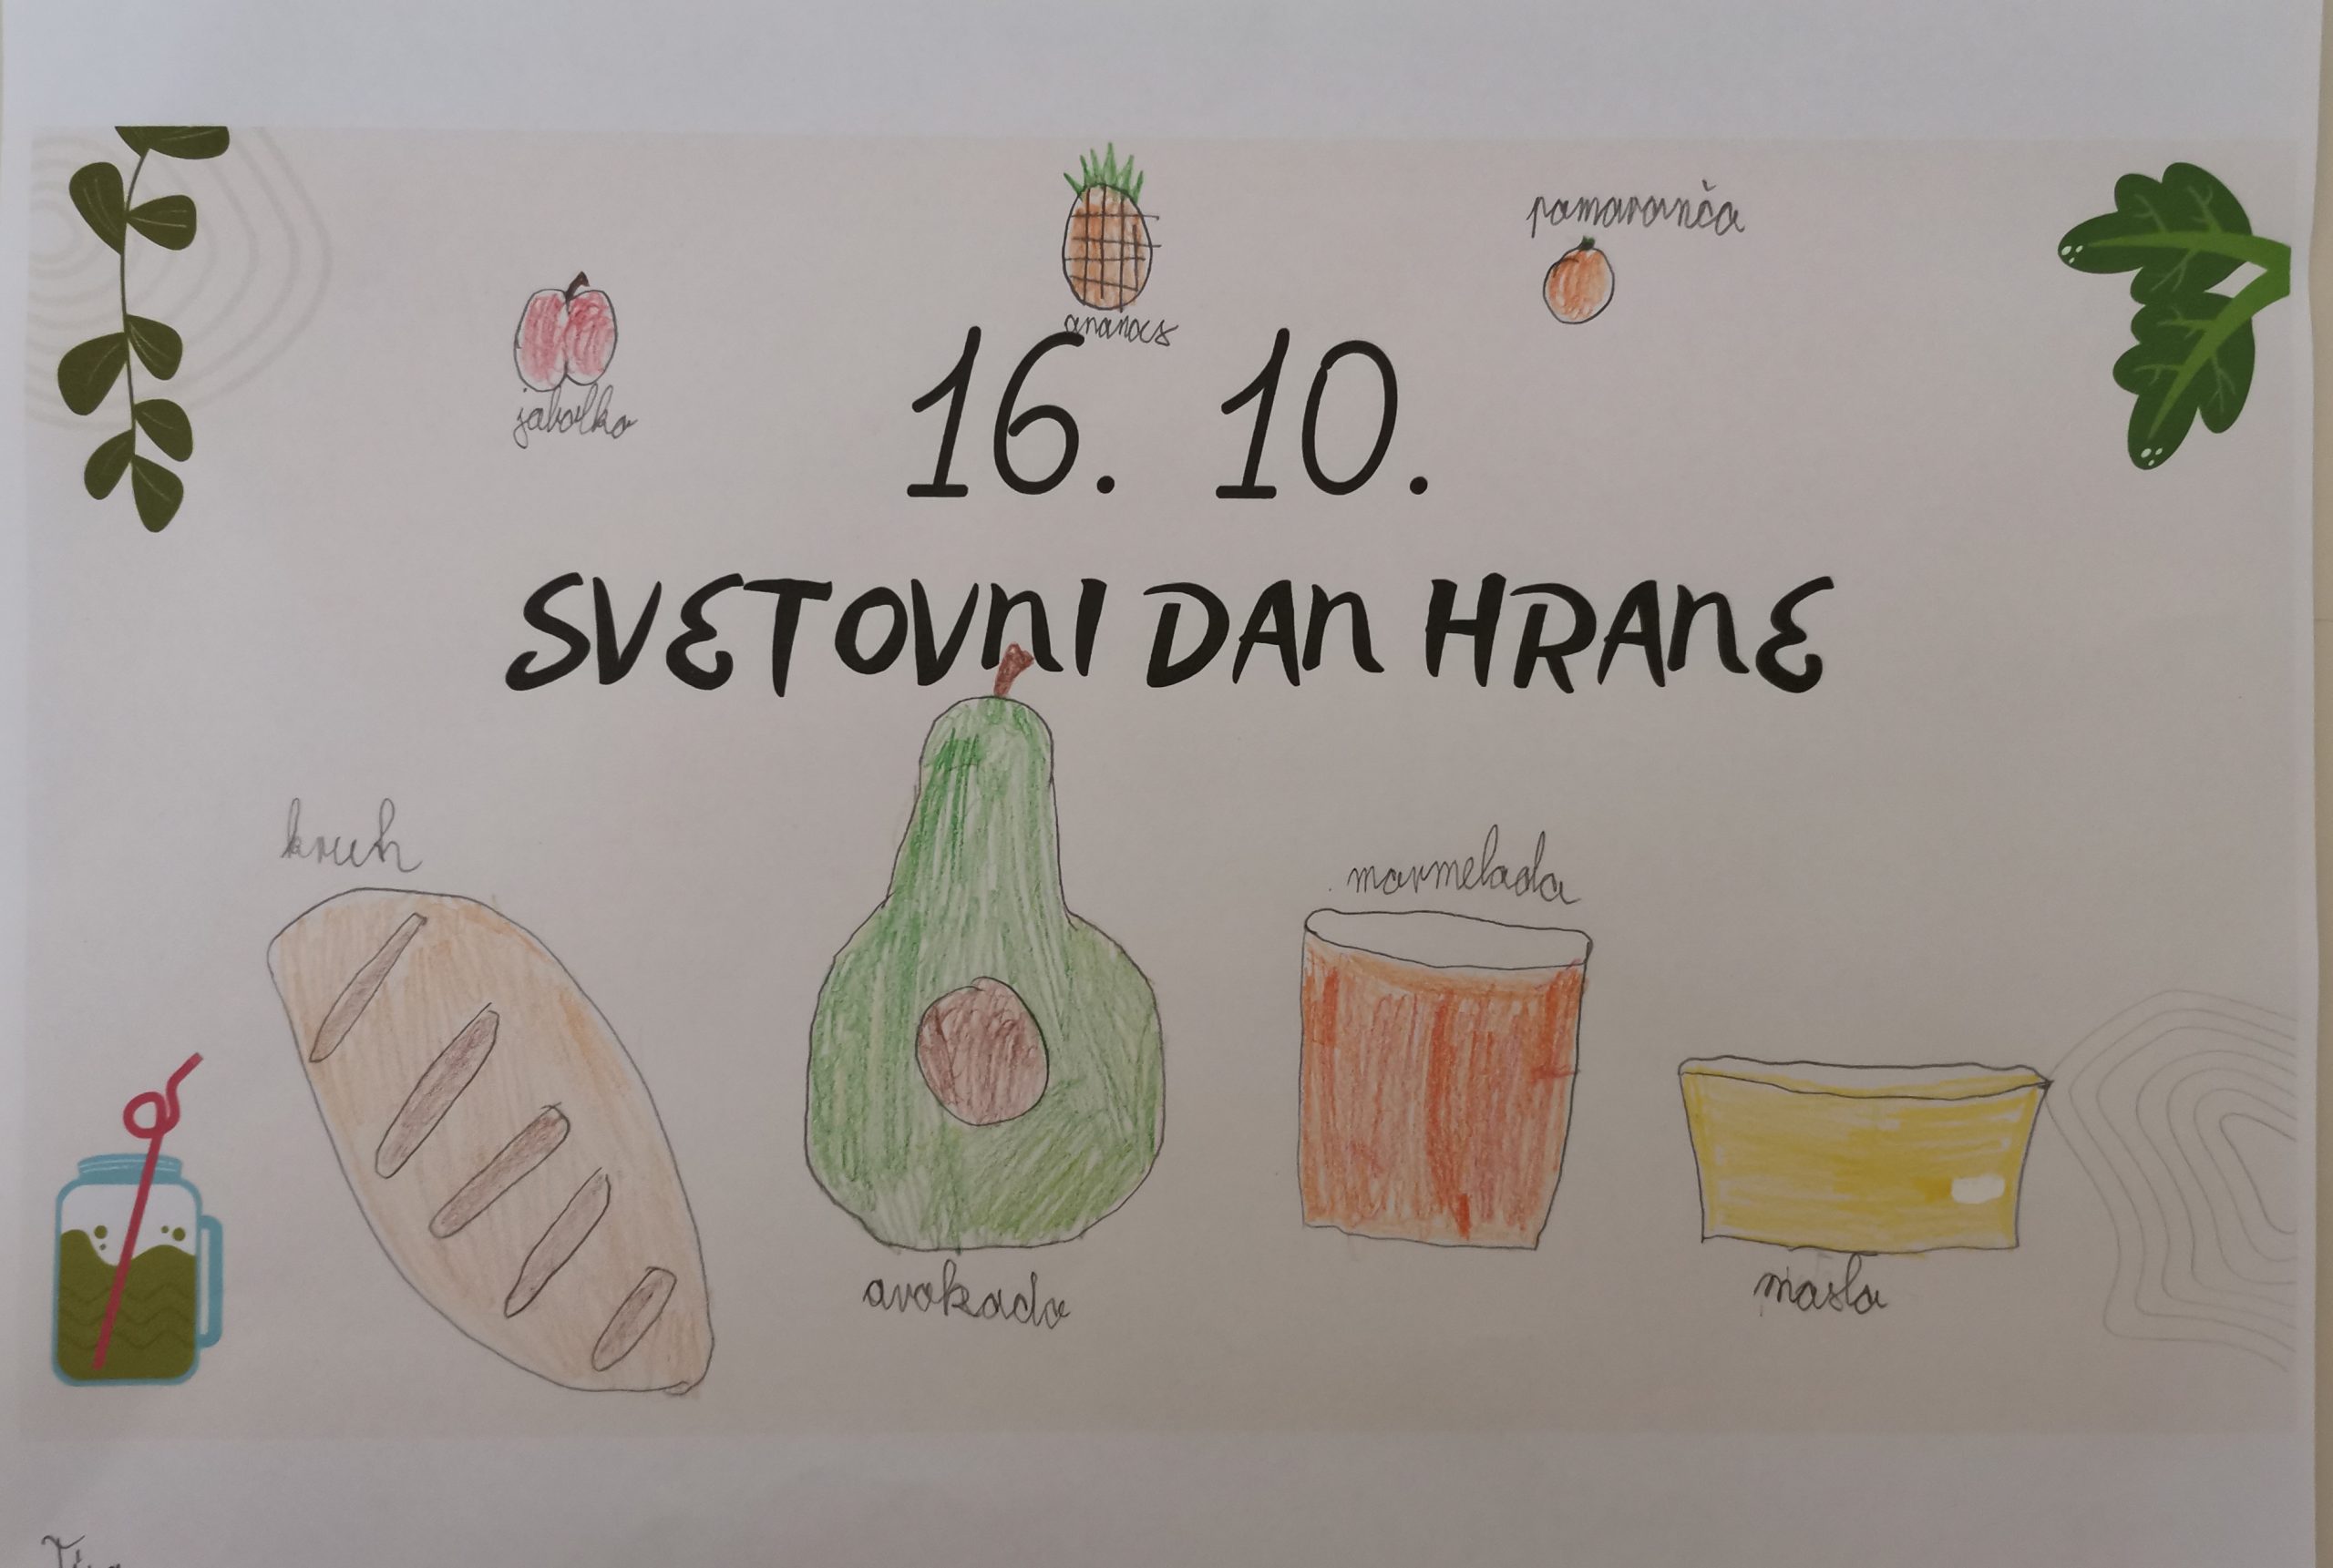 pomaranča
ananas
jabolko
16. 10.
SVETOVNI DAN HRANE
kruh
marmelada
avokado
maslo